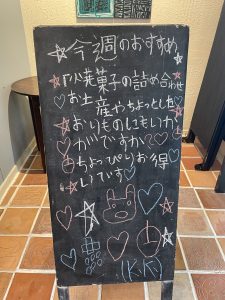 今週のおすすめ
小焼菓子の詰め合わせ
お土産やちょっとした
おくりものにもいか
がですか
ちょっぴりお得
です
(K.K)